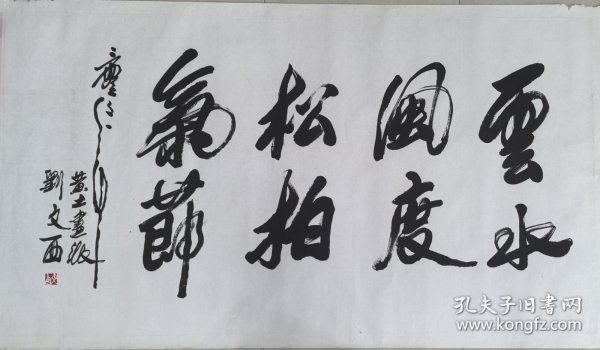 雲水
風度
松柏
氣節
黄土畫派
劉文西
孔夫子旧书网
www.kongfz.com